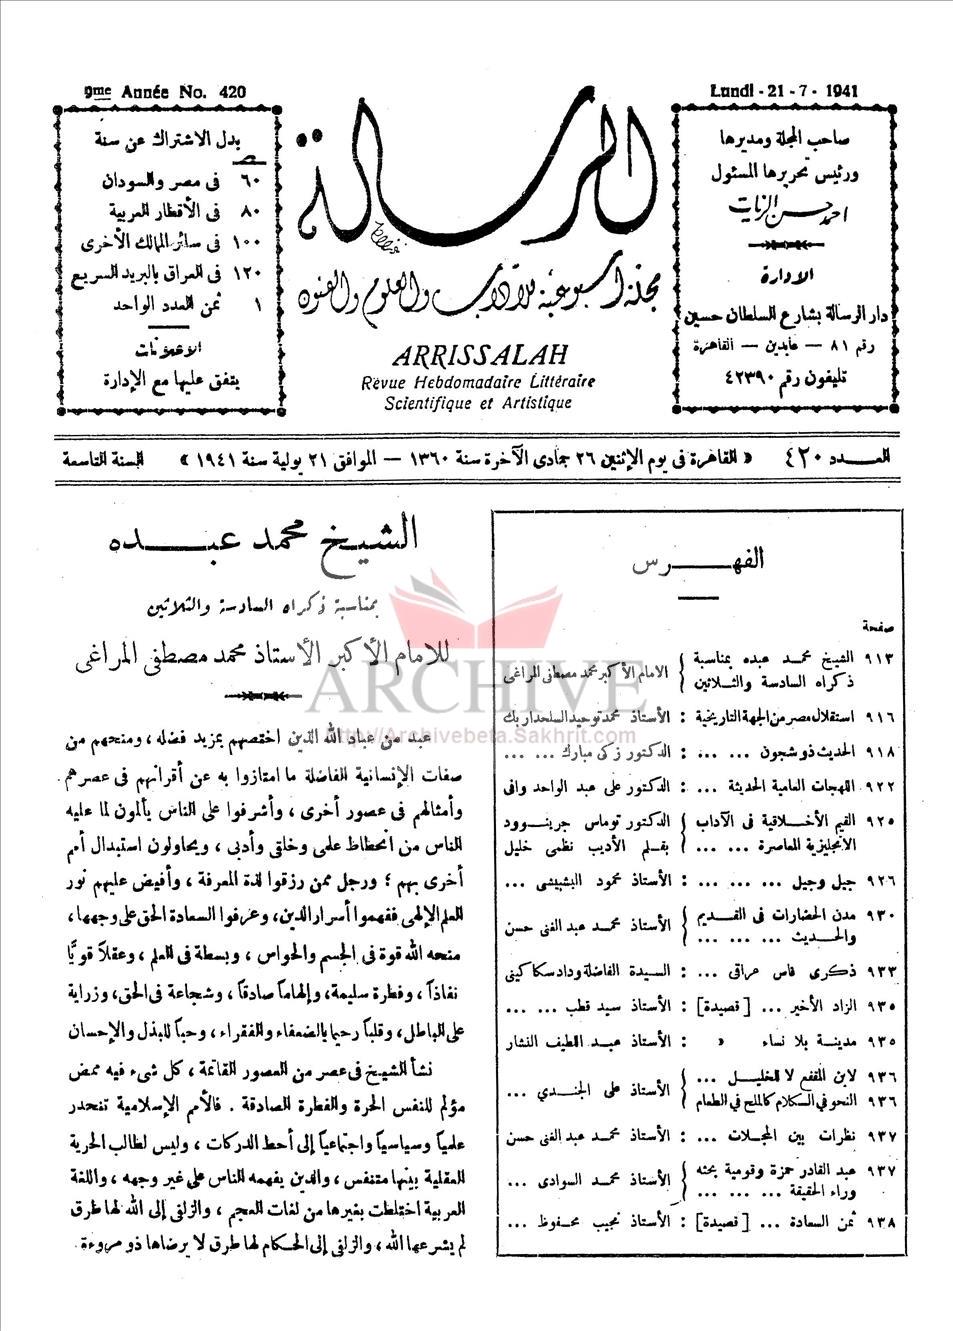 9me Année No. 420
Lundi - 21 - 7 - 1941
بدل الاشتراك عن سنة
ص
٦٠ فى مصر والسودان
٨٠ فى الأقطار العربية
١٠٠ فى سائر الممالك الأخرى
١٢٠ فى العراق بالبريد السريع
١ ثمن العدد الواحد
الاعلانات
يتفق عليها مع الإدارة
الرسالة
مجلة أسبوعية للآداب والعلوم والفنون
ARRISSALAH
Revue Hebdomadaire Littéraire
Scientifique et Artistique
صاحب المجلة ومديرها
ورئيس تحريرها المسئول
احمد حسن الزيات
الادارة
دار الرسالة بشارع السلطان حسين
رقم ٨١ — عابدين — القاهرة
تليفون رقم ٤٢٣٩٠
العـدد ٤٢٠ « القاهرة فى يوم الإثنين ٢٦ جمادى الآخرة سنة ١٣٦٠ — الموافق ٢١ يولية سنة ١٩٤١ » السنة التاسعة
الفهـرس
صفحة
٩١٣ الشيخ محمد عبده بمناسبة ذكراه السادسة والثلاثين } الامام الأكبر محمد مصطفى المراغى
٩١٦ استقلال مصر من الجهة التاريخية : الأستاذ محمد توحيد السلحدار بك
٩١٨ الحديث ذو شجون ... ... : الدكتور زكى مبارك ... ...
٩٢٢ اللهجات العامية الحديثة ... : الدكتور على عبد الواحد وافى
٩٢٥ القيم الأخلاقية فى الآداب } الدكتور توماس جرينـوود
الانجليزية المعاصرة ... ... } بقلم الأديب نظمى خليل
٩٢٦ جيل وجيل ... ... ... : الأستاذ محمود البشبيشى ...
٩٣٠ مدن الحضارات فى القـديم والحـديث ... ... ... } الأستاذ محمد عبد الغنى حسن
٩٣٣ ذكرى فاس عراقى ... : السيدة الفاضلة وداد سكاكينى
٩٣٥ الزاد الأخير ... [ قصيدة ] : الأستاذ سيد قطب ... ...
٩٣٥ مدينـة بلا نساء » : الأستاذ عبـد اللطيف النشار
٩٣٦ لابن المقفع لا للخليـل ...
٩٣٦ النحو فى الكلام كالملح فى الطعام } الأستاذ على الجنـدي ...
٩٣٧ نظرات بين المجـلات ... : الأستاذ محمد عبد الغنى حسن
٩٣٧ عبد القادر حمزة وقومية بحثه وراء الحقيقة ... ... ... } الأستاذ محمد السوادى ...
٩٣٨ ثمن السعادة ... [ قصيدة ] : الأستاذ نجيب محفوظ ...
الشيـخ محمد عبـده
بمناسبة ذكراه السادسة والثلاثين
للامام الأكبر الأستاذ محمد مصطفى المراغى
عبد من عباد الله الذين اختصهم بمزيد فضله ، ومنحهم من
صفات الإنسانية الفاضلة ما امتازوا به عن أقرانهم فى عصرهم
وأمثالهم فى عصور أخرى ، وأشرفوا على الناس يألمون لما عليه
الناس من انحطاط علمى وخلقى وأدبى ، ويحاولون استبدال أمم
أخرى بهم ؛ ورجل ممن رزقوا لذة المعرفة ، وأفيض عليهم نور
العلم الإلهى ففهموا أسرار الدين، وعرفوا السعادة الحق على وجهها،
منحه الله قوة فى الجسم والحواس ، وبسطة فى العلم ، وعقلاً قويًّا
نفاذاً ، وفطرة سليمة، وإلهاماً صادقاً ، وشجاعة فى الحق، وزراية
على الباطل، وقلباً رحيما بالضعفاء والفقراء ، وحباً للبذل والإحسان
نشأ الشيخ فى عصر من العصور القاتمة ، كل شىء فيه ممض
مؤلم للنفس الحرة والفطرة الصادقة . فالأمم الإسلامية تنحدر
علمياً وسياسياً واجتماعياً إلى أحط الدركات ، وليس لطالب الحرية
العقلية بينها متنفس ، والدين يفهمه الناس على غير وجهه ، واللغة
العربية اختلطت بغيرها من لغات العجم ، والزلفى إلى الله لها طرق
لم يشرعها الله ، والزلفى إلى الحكام لها طرق لا يرضاها ذو مروءة.
ARCHIVE
http://Archivebeta.Sakhrit.com